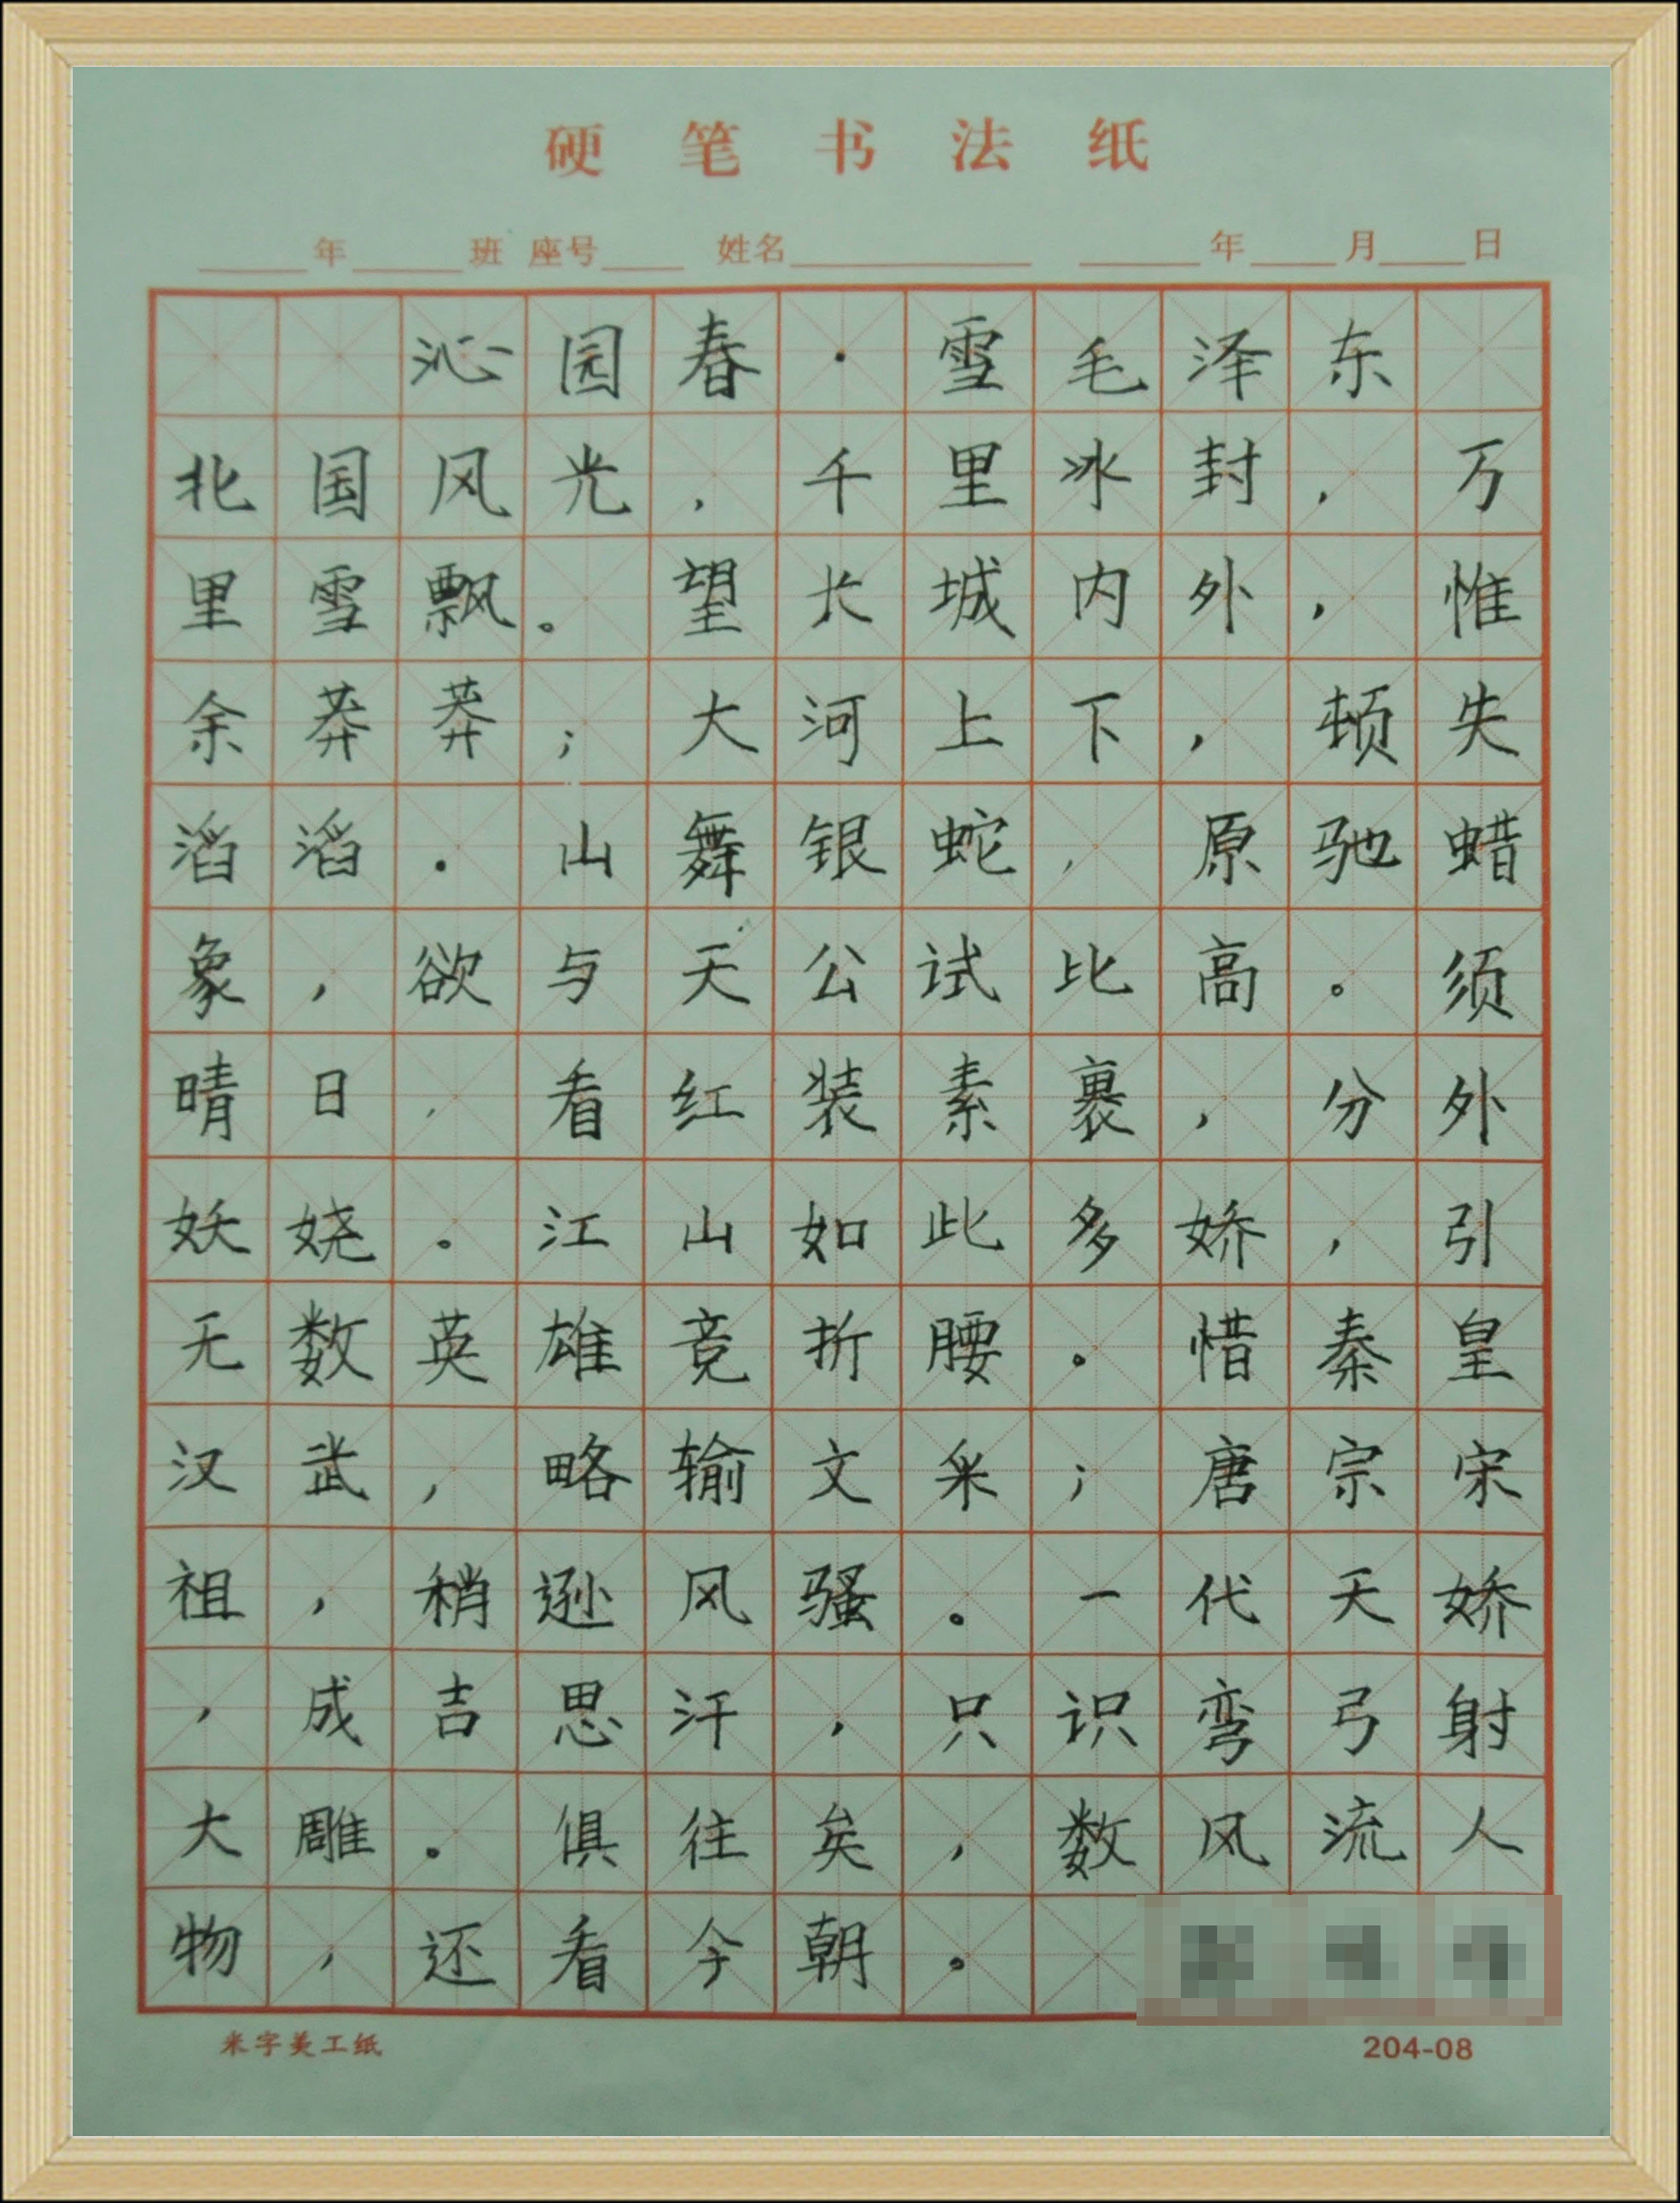 硬笔书法纸
年 班 座号 姓名 年 月 日
沁园春·雪毛泽东
北国风光，千里冰封，万
里雪飘。望长城内外，惟
余莽莽；大河上下，顿失
滔滔．山舞银蛇，原驰蜡
象，欲与天公试比高。须
晴日，看红装素裹，分外
妖娆。江山如此多娇，引
无数英雄竞折腰。惜秦皇
汉武，略输文采；唐宗宋
祖，稍逊风骚。一代天娇
，成吉思汗，只识弯弓射
大雕。俱往矣，数风流人
物，还看今朝。
米字美工纸 204-08